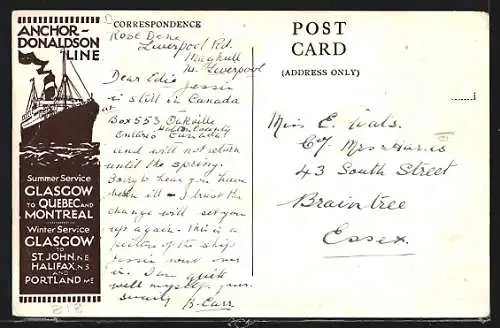 ANCHOR-
DONALDSON
LINE
Summer Service
GLASGOW
TO QUEBEC AND
MONTREAL
Winter Service
GLASGOW
TO
ST. JOHN, N.E.
HALIFAX, N.S
AND
PORTLAND ME
CORRESPONDENCE
Rose Dene
Liverpool Rd.
Maghull
Nr. Liverpool
Dear Edie Jessie
is still in Canada
at
Box 553 Oakville
Halton County
Ontario Canada
and will not return
until the spring.
Sorry to hear you have
been ill - I trust the
change will set you
up again. This is a
picture of the ship
Jessie went over
in. I am quite
well myself, yours
B. Carr
POST
CARD
(ADDRESS ONLY)
Miss E. Wals.
C/o Mrs Harris
43 South Street
Braintree
Essex.